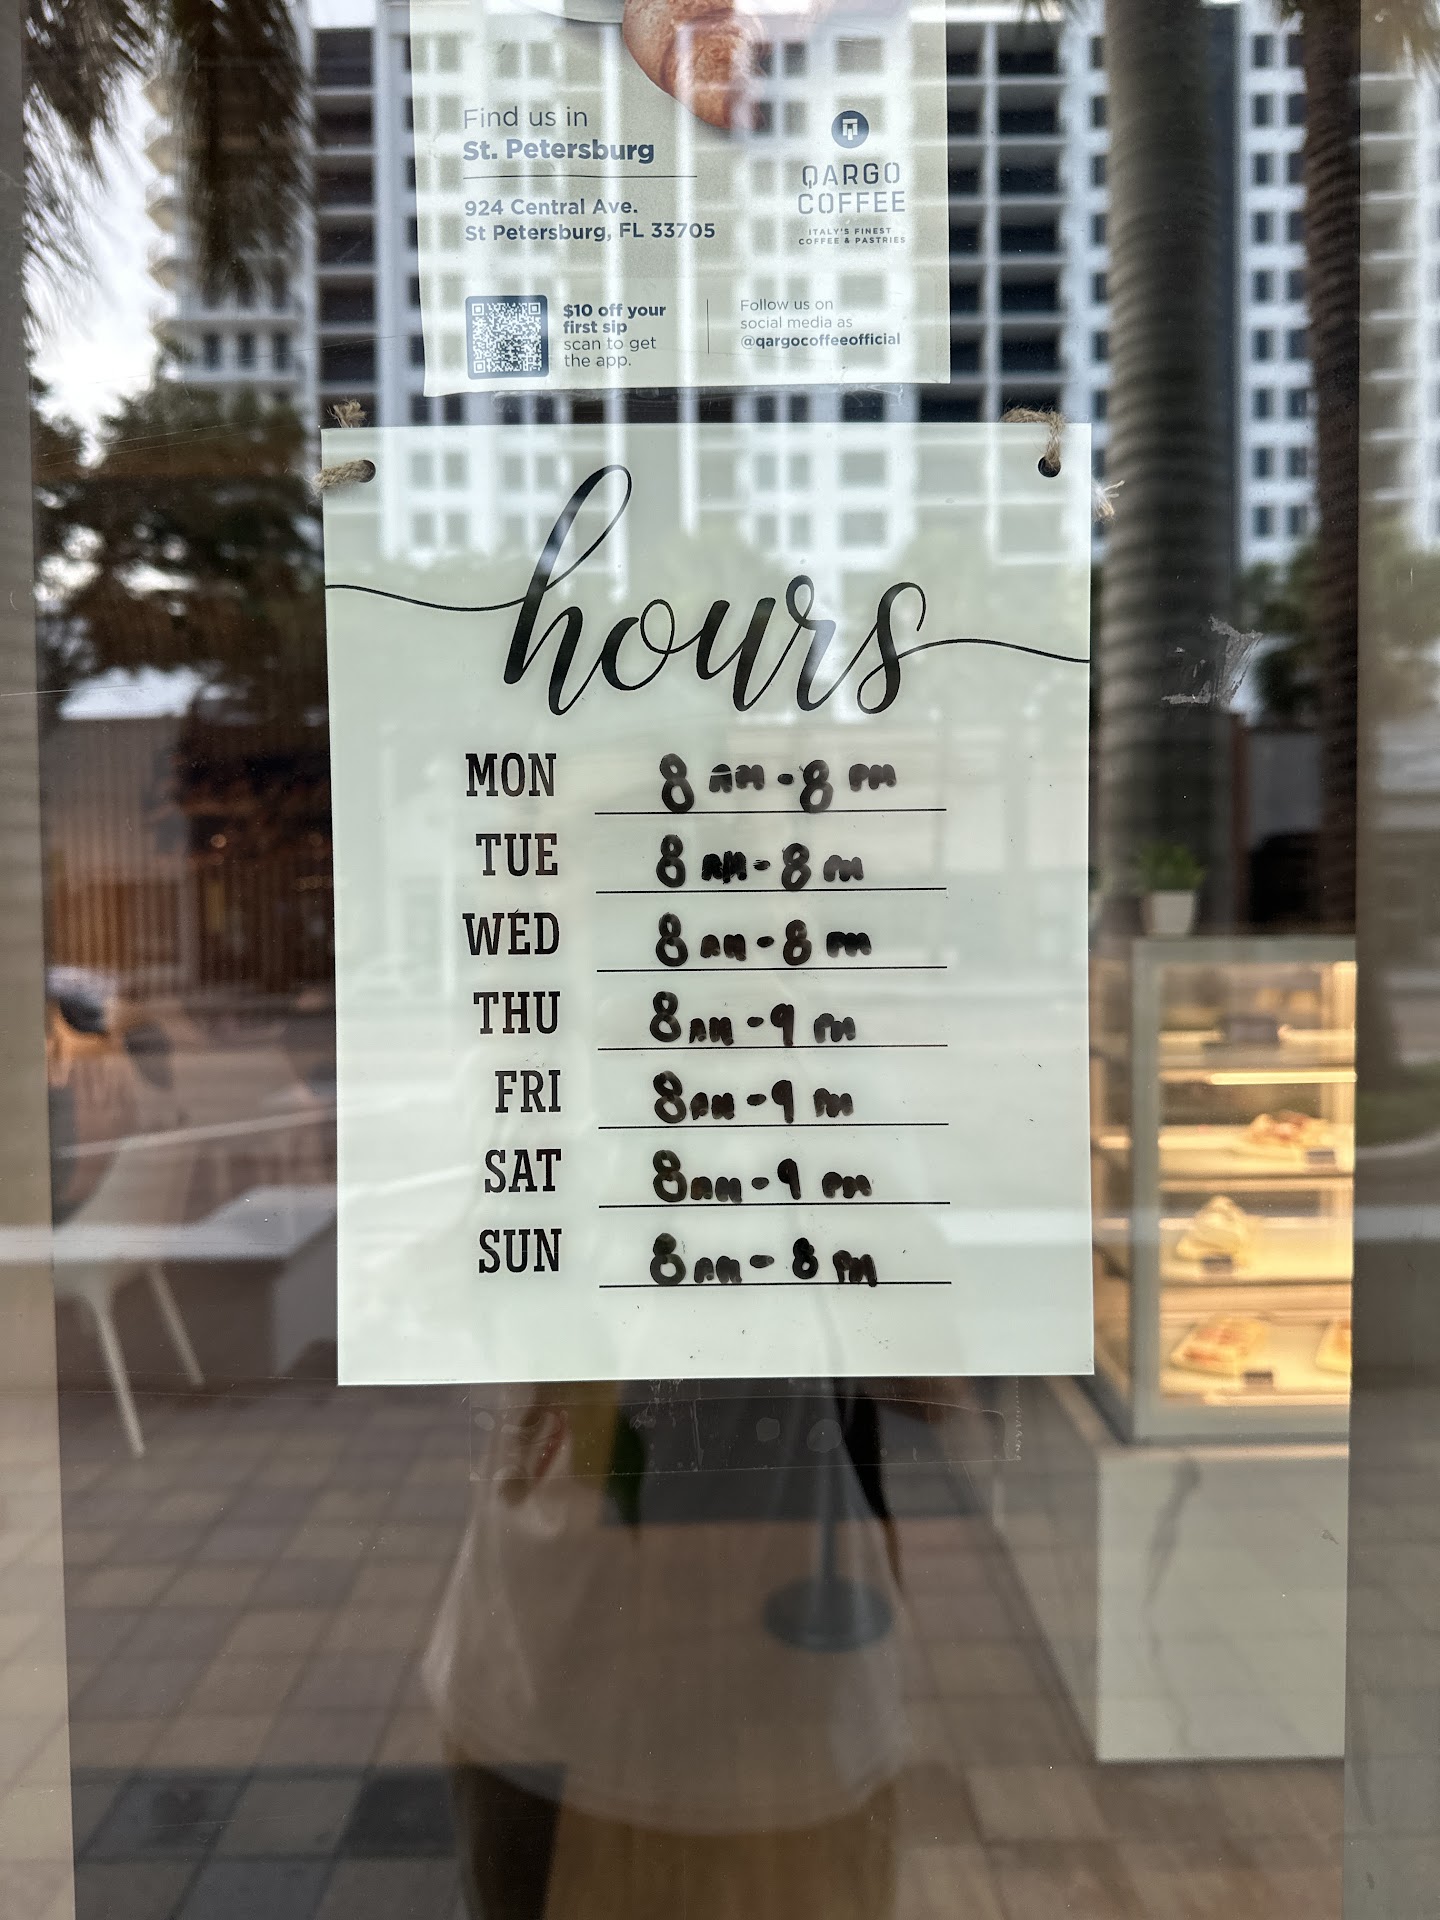 Find us in
St. Petersburg
924 Central Ave.
St Petersburg, FL 33705
QARGO
COFFEE
ITALY'S FINEST
COFFEE & PASTRIES
$10 off your
first sip
scan to get
the app.
Follow us on
social media as
@qargocoffeeofficial
hours
MON 8 AM - 8 PM
TUE 8 AM - 8 PM
WED 8 AM - 8 PM
THU 8 AM - 9 PM
FRI 8 AM - 9 PM
SAT 8 AM - 9 PM
SUN 8 AM - 8 PM